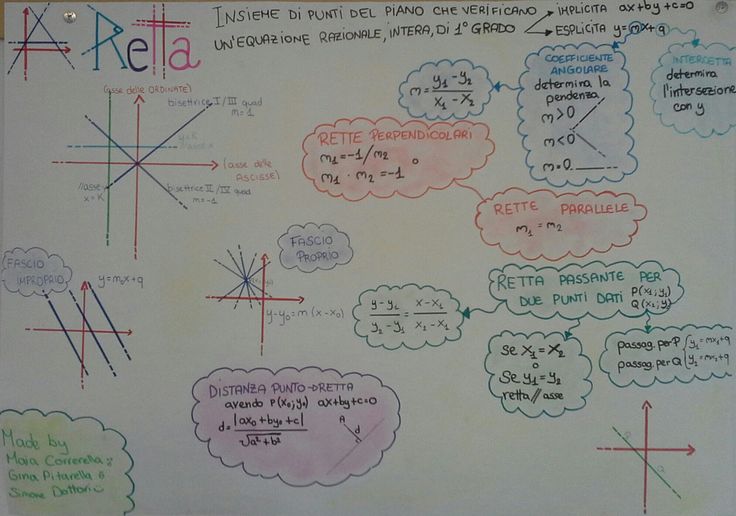 LA Retta
INSIEME DI PUNTI DEL PIANO CHE VERIFICANO
UN'EQUAZIONE RAZIONALE, INTERA, DI 1° GRADO
IMPLICITA ax+by+c=0
ESPLICITA y=mx+q
(asse delle ORDINATE)
bisettrice I/III quad
m=1
y=K
//asse x
(asse delle
ASCISSE)
//asse y
x=K
bisettrice II/IV quad
m=-1
m=\frac{y_1-y_2}{x_1-x_2}
COEFFICIENTE
ANGOLARE
determina la
pendenza
m>0
m<0
m=0
INTERCETTA
determina
l'intersezione
con y
RETTE PERPENDICOLARI
m_1=-1/m_2 o
m_1 · m_2=-1
RETTE PARALLELE
m_1=m_2
FASCIO
IMPROPRIO
FASCIO
PROPRIO
y-y_0=m(x-x_0)
RETTA PASSANTE PER
DUE PUNTI DATI P(x_1;y_1)
\frac{y-y_1}{y_2-y_1}=\frac{x-x_1}{x_2-x_1}
se x_1=x_2
o
se y_1=y_2
retta // asse
passag. per P y_1=mx_1+q
passag. per Q y_2=mx_2+q
DISTANZA PUNTO-RETTA
avendo P(x_0;y_0) ax+by+c=0
d=\frac{|ax_0+by_0+c|}{\sqrt{a^2+b^2}}
A
d
P
Q
Made by
Gina Pitarella
Simone Dattori